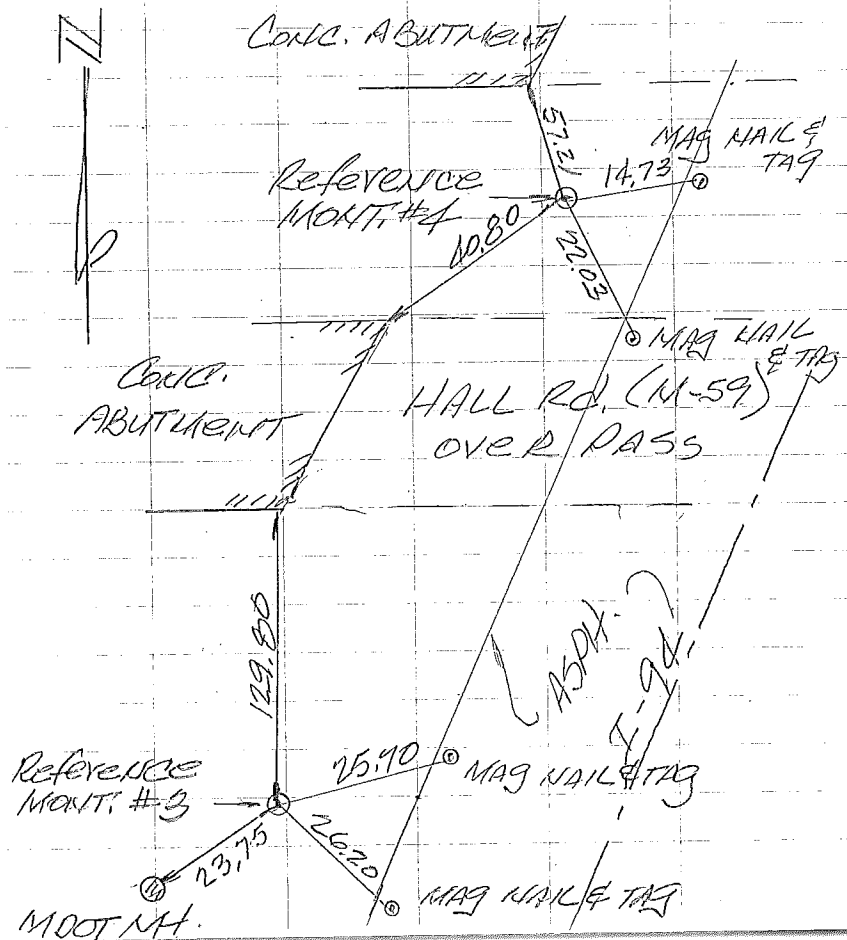 N
CONC. ABUTMENT
57.21
MAG NAIL &
TAG
14.73
Reference
MONT. #4
40.80
22.03
MAG NAIL
& TAG
CONC.
ABUTMENT
HALL Rd. (M-59)
OVER PASS
129.80
ASPH.
I-94
Reference
MONT. #3
25.90
MAG NAIL & TAG
23.75
26.20
MAG NAIL & TAG
MDOT MH.